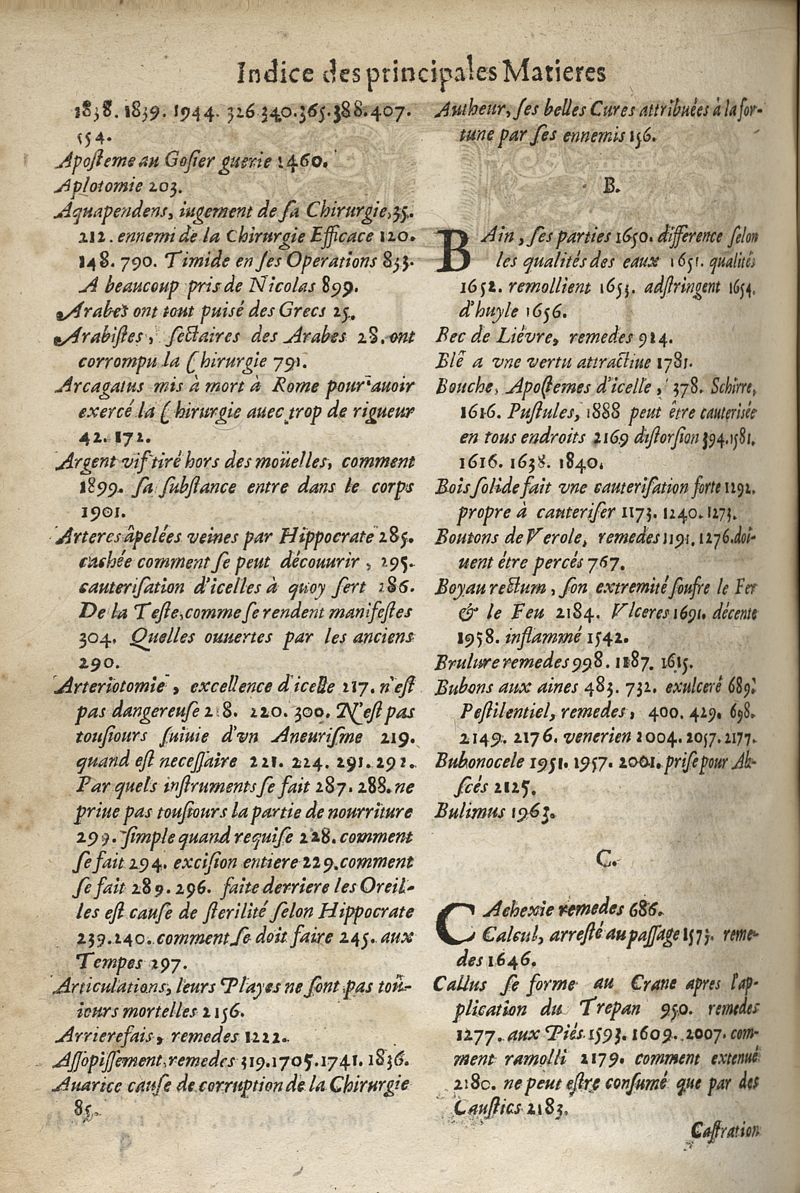 Indice des principales Matieres
1838. 1839. 1944. 326 340. 365. 388. 407.
554.
Aposteme au Gosier guerie 1460.
Aplotomie 203.
Aquapendens, iugement de sa Chirurgie, 35.
212. ennemi de la Chirurgie Efficace 120.
148. 790. Timide en ses Operations 833.
A beaucoup pris de Nicolas 899.
Arabes ont tout puisé des Grecs 25.
Arabistes, sectaires des Arabes 28. ont
corrompu la Chirurgie 791.
Arcagatus mis à mort à Rome pour auoir
exercé la Chirurgie auec trop de rigueur
42. 172.
Argent vif tiré hors des moüelles, comment
1899. sa substance entre dans le corps
1901.
Arteres âpelées veines par Hippocrate 285.
cachée comment se peut découurir, 295.
cauterisation d'icelles à quoy sert 286.
De la Teste, comme se rendent manifestes
304. Quelles ouuertes par les anciens
290.
Arteriotomie, excellence d'icelle 217. n'est
pas dangereuse 218. 220. 300. N'est pas
tousiours suiuie d'vn Aneurisme 219.
quand est necessaire 221. 224. 291. 292.
Par quels instruments se fait 287. 288. ne
priue pas tousiours la partie de nourriture
299. simple quand requise 228. comment
se fait 294. excision entiere 229. comment
se fait 289. 296. faite derriere les Oreil-
les est cause de sterilité selon Hippocrate
239. 240. comment se doit faire 245. aux
Tempes 297.
Articulations, leurs Playes ne sont pas toû-
iours mortelles 2156.
Arrierefais, remedes 1222.
Assopissement, remedes 319. 1705. 1741. 1836.
Auarice cause de corruption de la Chirurgie
85.
Autheur, ses belles Cures attribuées à la for-
tune par ses ennemis 156.
B.
BAin, ses parties 1650. difference selon
les qualités des eaux 1651. qualités
1652. remollient 1653. adstringent 1654.
d'huyle 1656.
Bec de Liévre, remedes 914.
Blé a vne vertu attractiue 1781.
Bouche, Apostemes d'icelle, 378. Schirre,
1616. Pustules, 1888 peut être cauterisée
en tous endroits 2169 distorsion 394. 1581.
1616. 1638. 1840.
Bois solide fait vne cauterisation forte 1192.
propre à cauteriser 1173. 1240. 1273.
Boutons de Verole, remedes 1191. 1276. doi-
uent étre percés 767.
Boyau rectum, son extremité soufre le Fer
& le Feu 2184. Vlceres 1691. décente
1958. inflammé 1542.
Brulure remedes 998. 1187. 1615.
Bubons aux aines 483. 732. exulceré 689.
Pestilentiel, remedes, 400. 429. 698.
2149. 2176. venerien 2004. 2057. 2177.
Bubonocele 1951. 1957. 2001. prise pour Ab-
scés 2125.
Bulimus 1963.
C.
CAchexie remedes 686.
Calcul, arresté au passage 1573. reme-
des 1646.
Callus se forme au Crane apres l'ap-
plication du Trepan 950. remedes
1277. aux Piés 1593. 1609. 2007. com-
ment ramolli 2179. comment extenué
2180. ne peut estre consumé que par des
Caustics 2183.
Castration